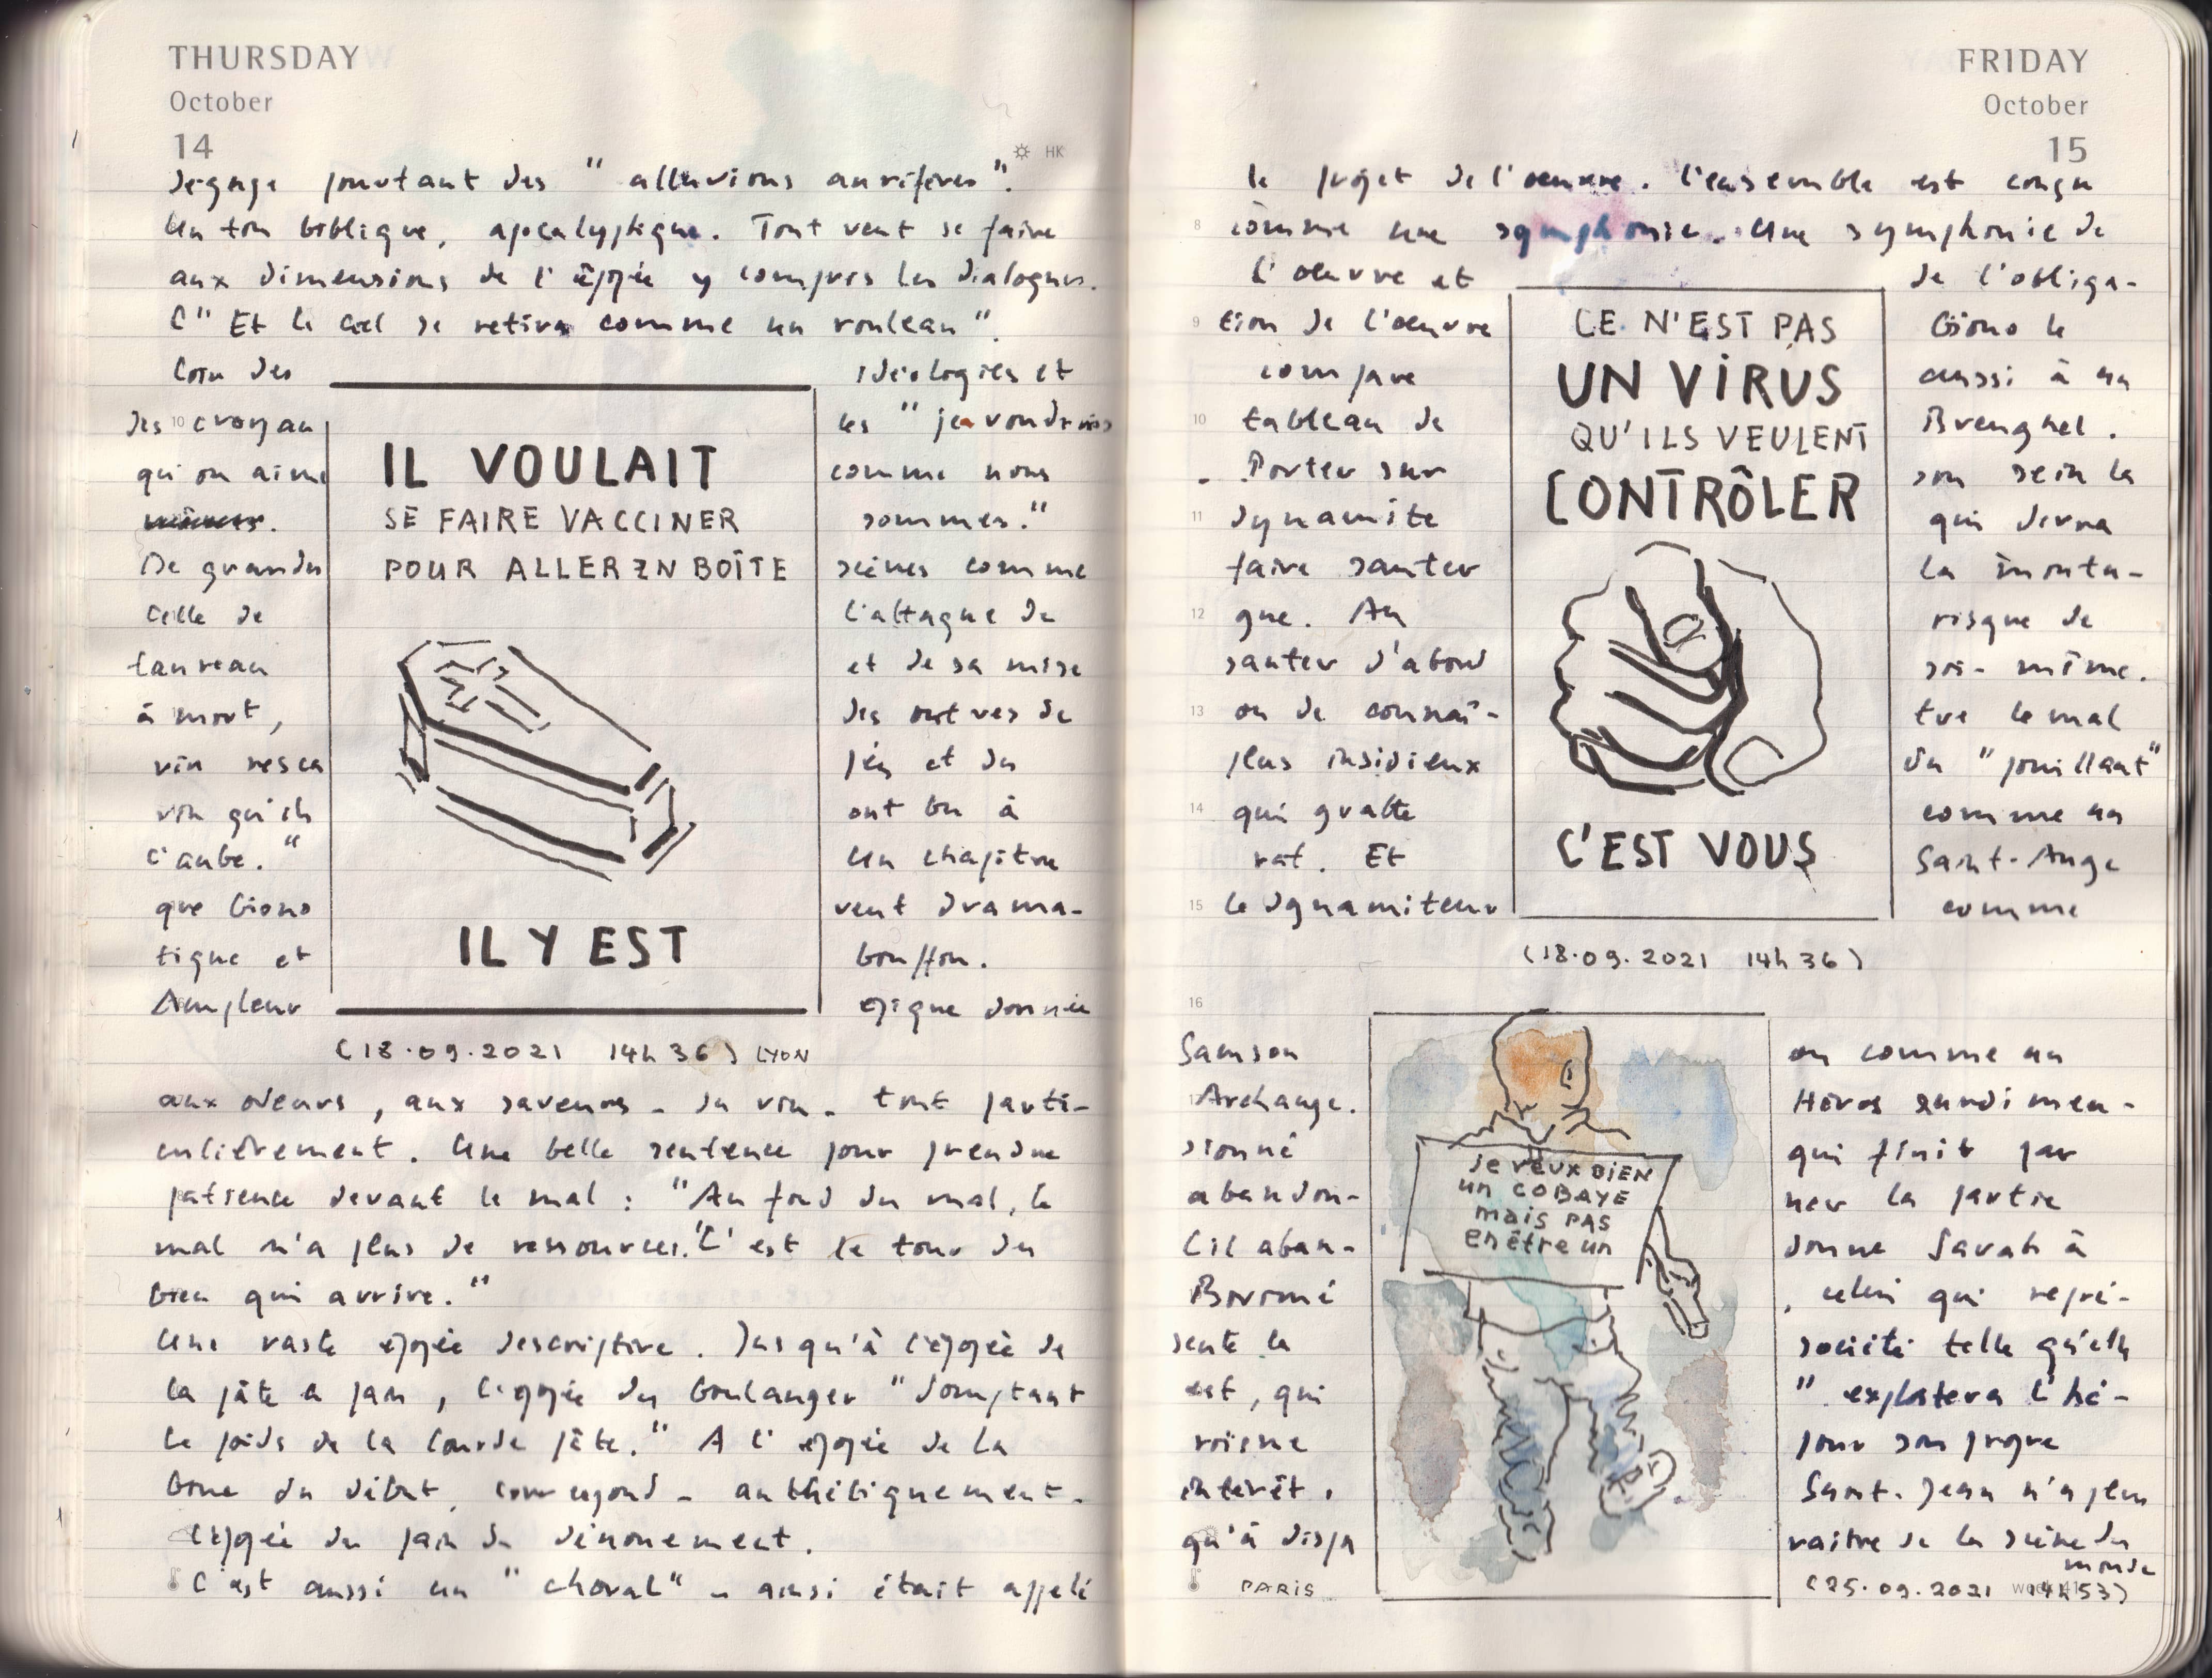 THURSDAY
October
14
HK
dégage pourtant des "alluvions aurifères".
Un ton biblique, apocalyptique. Tout veut se faire
aux dimensions de l'épopée y compris les dialogues.
C" Et le ciel se retira comme un rouleau"
Loin des idéologies et
des croyan ces "je voudrais
qu'on aime comme nous
sommes."
De grandes scènes comme
celle de l'attaque du
taureau et de sa mise
à mort, des outres de
vin resca pés et du
vin qu'ils ont bu à
l'aube." Un chapitre
que Giono veut drama-
tique et bouffon.
Ampleur épique donnée
IL VOULAIT
SE FAIRE VACCINER
POUR ALLER EN BOÎTE
IL Y EST
(18.09.2021 14h36) LYON
aux odeurs, aux saveurs - du vin - tout parti-
culièrement. Une belle sentence pour prendre
patience devant le mal : "Au fond du mal, le
mal n'a plus de ressources. C'est le tour du
bien qui arrive."
Une vaste épopée descriptive. Jusqu'à l'épopée de
la pâte à pain, l'épopée du boulanger "domptant
le poids de la lourde pâte." A l'épopée de la
boue du début, correspond - antithétiquement -
l'épopée du pain du dénouement.
C'est aussi un "choral" - ainsi était appelé
FRIDAY
October
15
le projet de l'oeuvre. L'ensemble est conçu
comme une symphonie. Une symphonie de
l'oeuvre et de l'obliga-
tion de l'oeuvre Giono le
compare aussi à un
tableau de Brueghel.
- Porter sur son sein la
dynamite qui devra
faire sauter la monta-
gne. Au risque de
sauter d'abord soi-même.
ou de connaî- tre le mal
plus insidieux du "pouillant"
qui gratte comme un
rat. Et Saint-Ange
le dynamiteur comme
CE N'EST PAS
UN VIRUS
QU'ILS VEULENT
CONTRÔLER
C'EST VOUS
(18.09.2021 14h36)
Samson ou comme un
Archange. Héros
sionné qui finit par
abandon- ner la partie
Lil aban- donne Sarah à
Boromé, celui qui repré-
sente la société telle qu'elle
est, qui "exploitera l'hé-
roïsme pour son propre
intérêt. Saint-Jean n'a plus
qu'à dispa raître de la scène du
monde
JE VEUX BIEN
UN COBAYE
MAIS PAS
EN ÊTRE UN
PARIS
(25.09.2021 14h53)
8
9
10
11
12
13
14
15
16